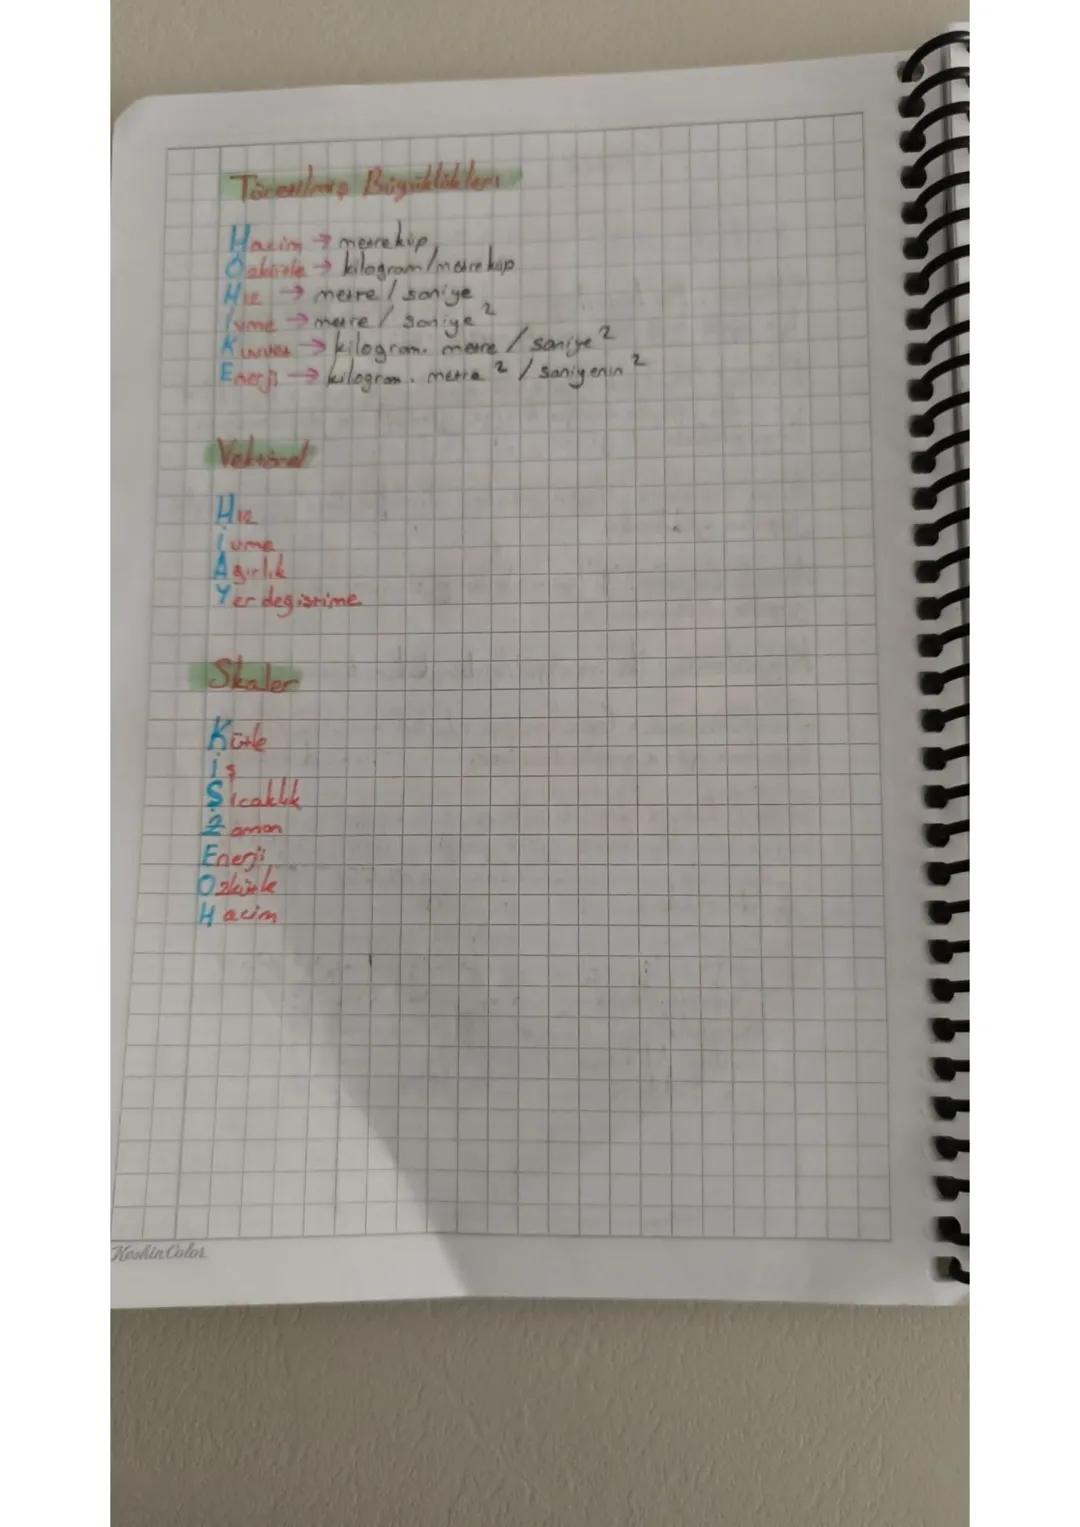 Türetilmiş Büyüklükleri
Hacim → metreküp
Özkütle → kilogram/metreküp
Hız → metre / saniye
İvme → metre / saniye ²
Kuvvet → kilogram. metre / saniye ²
Enerji → kilogram. metre ² / saniyenin ²
Vektörel
Hız
İvme
Ağırlık
Yer değiştirme
Skaler
Kütle
İş
Sıcaklık
Zaman
Enerji
Özkütle
Hacim
Keskin Color